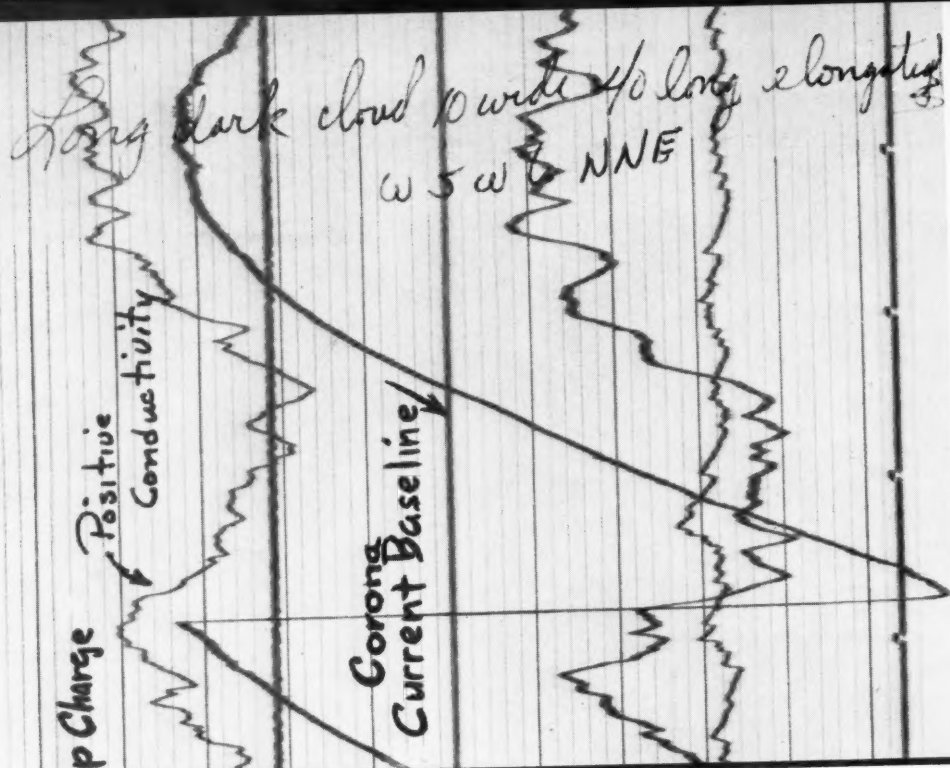 Long dark cloud 10 wide 40 long elongated
WSW NNE
Positive
Conductivity
Corona
Current Baseline
p Charge